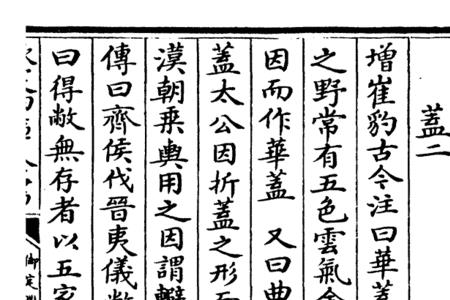 蓋二
增崔豹古今注曰華蓋
之野常有五色雲氣金
因而作華蓋 又曰曲
蓋太公因折蓋之形而
漢朝乘輿用之因謂
傳曰齊侯伐晉夷儀敝
曰得敝無存者以五家